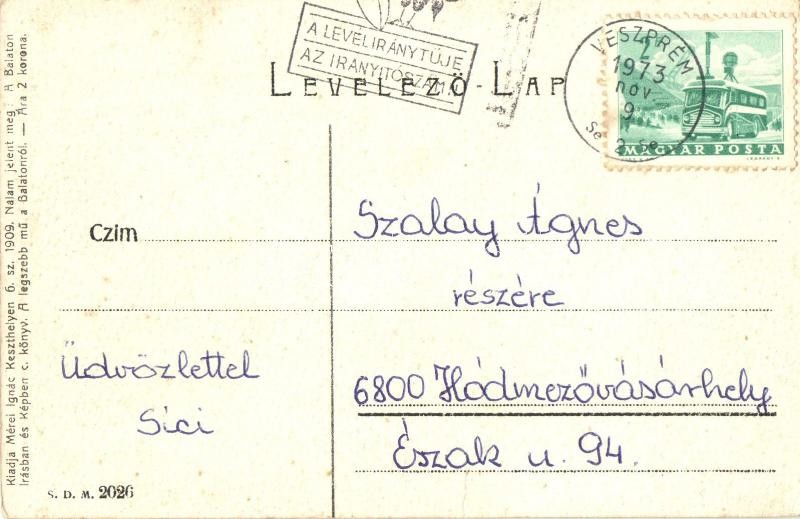 A LEVÉL IRÁNYTŰJE
AZ IRÁNYÍTÓSZÁM
LEVELEZŐ-LAP
VESZPRÉM
1973
nov
9
2
MAGYAR POSTA
Czim
Szalay Ágnes
részére
6800 Hódmezővásárhely
Észak u. 94.
Üdvözlettel
Sici
S. D. M. 2026
Kiadja Mérei Ignác Keszthelyen 6. sz. 1909. Nálam jelent meg: A Balaton
Irásban és Képben c. könyv. A legszebb mű a Balatonról. — Ára 2 korona.